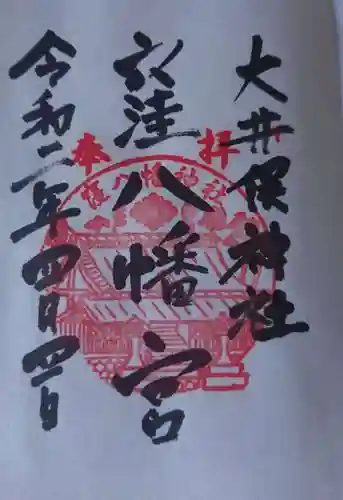 大井俣神社
窪八幡宮
奉拝
窪八幡神社
令和二年四月四日